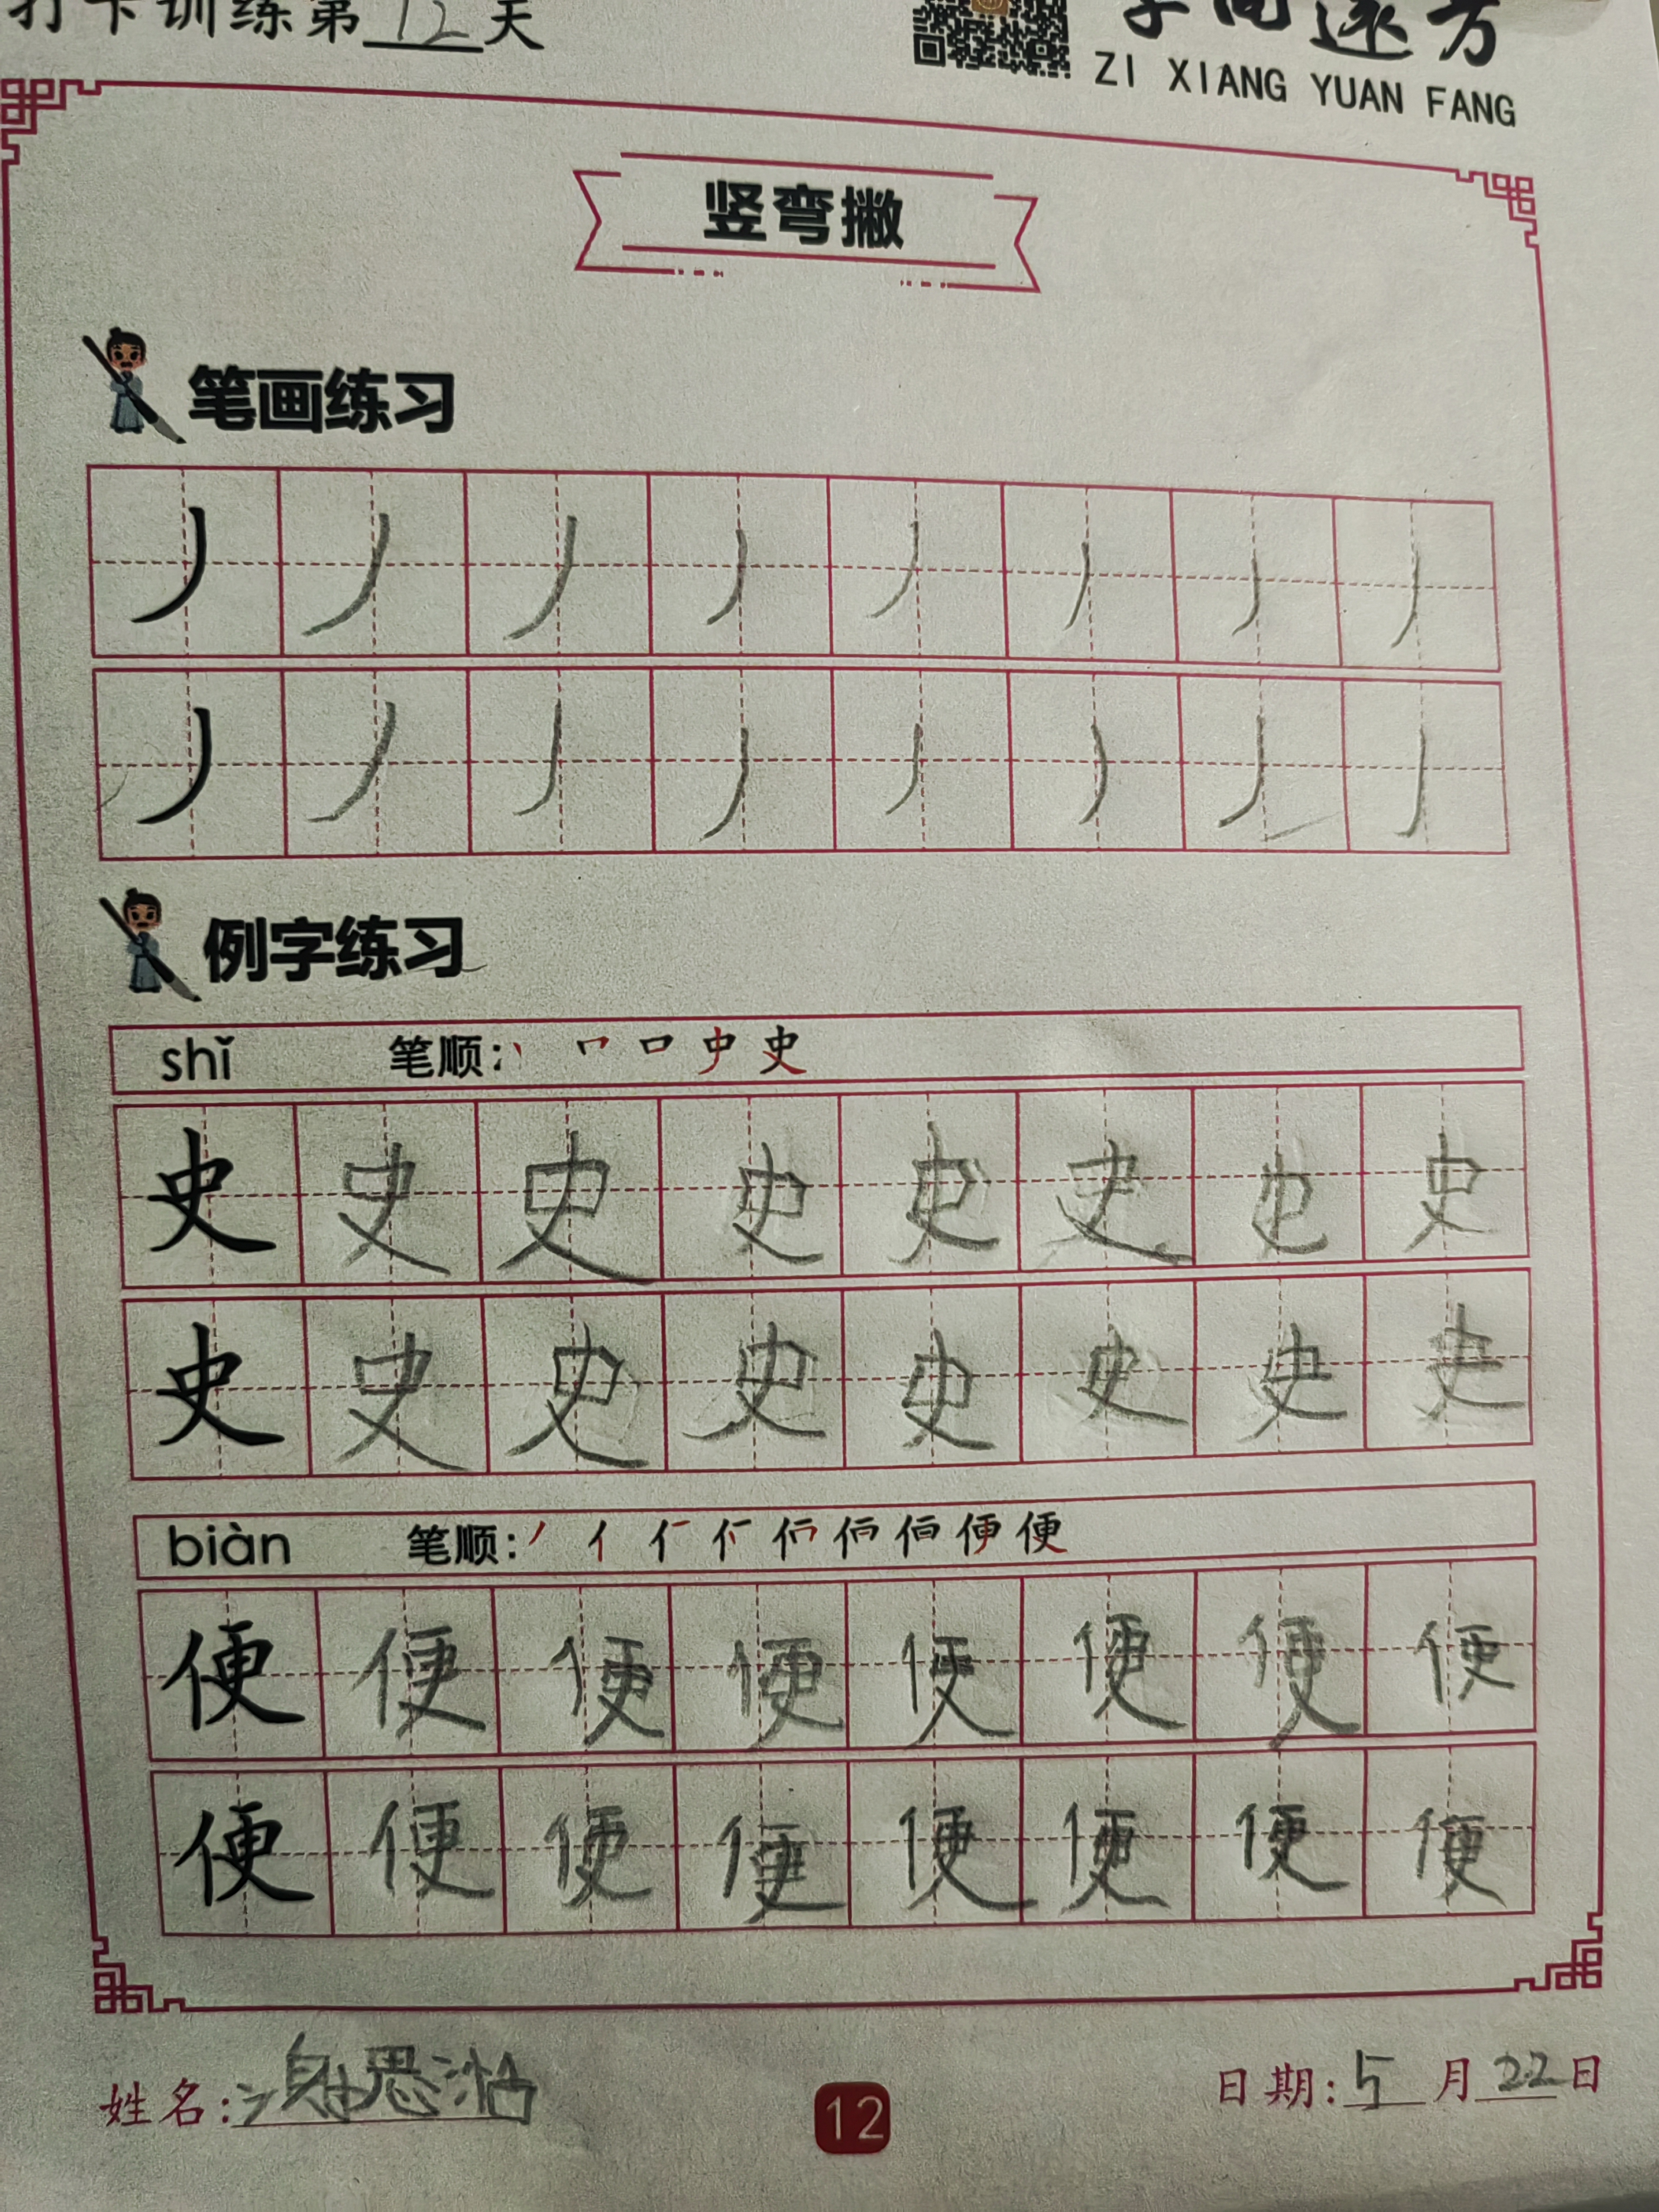 打卡训练第12天
字向远方
ZI XIANG YUAN FANG
竖弯撇
笔画练习
丿丿丿丿丿丿丿丿
丿丿丿丿丿丿丿丿
例字练习
shǐ 笔顺:丨 𠃍 口 史 史
史史史史史史史史
史史史史史史史史
biàn 笔顺:丿 亻 便
便便便便便便便便
便便便便便便便便
姓名: 思
12
日期:5月22日